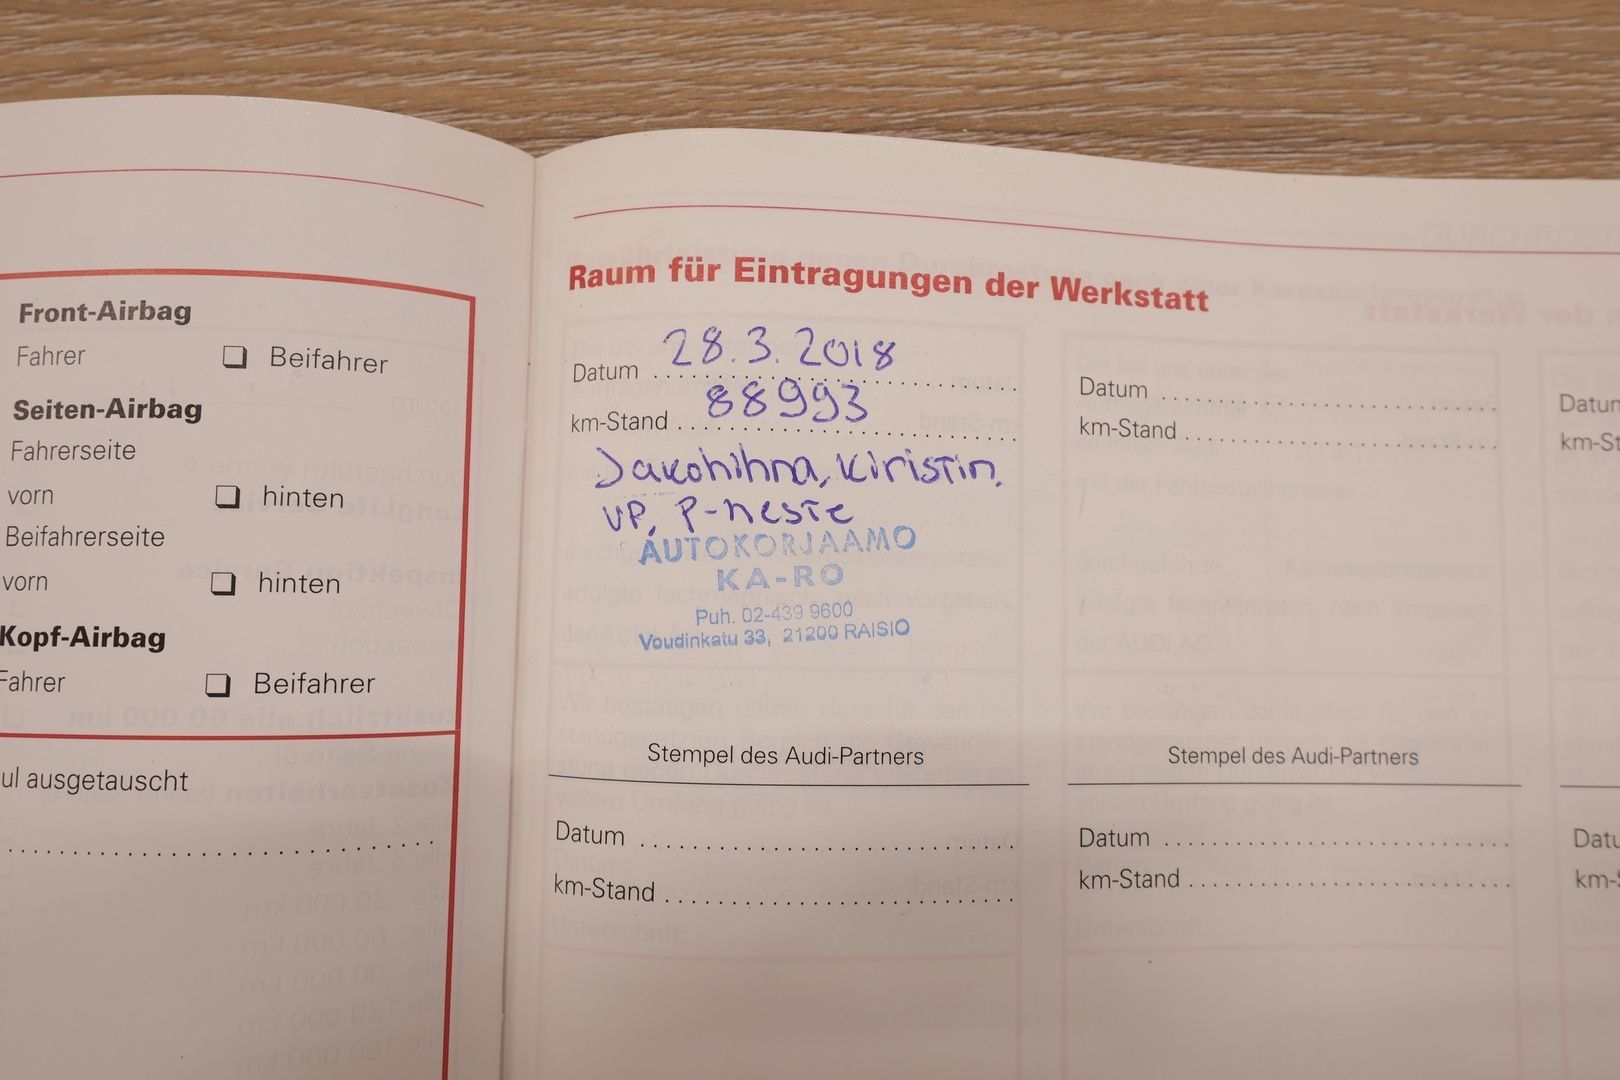 Front-Airbag
Fahrer ❏ Beifahrer
Seiten-Airbag
Fahrerseite
vorn ❏ hinten
Beifahrerseite
vorn ❏ hinten
Kopf-Airbag
Fahrer ❏ Beifahrer
ul ausgetauscht
Raum für Eintragungen der Werkstatt
Datum 28.3.2018
km-Stand 88993
Jakohihna, kiristin,
VP, P-neste
AUTOKORJAAMO
KA-RO
Puh. 02-439 9600
Voudinkatu 33, 21200 RAISIO
Stempel des Audi-Partners
Datum
km-Stand
Datum
km-Stand
Stempel des Audi-Partners
Datum
km-Stand
Datum
km-St
Datu
km-S